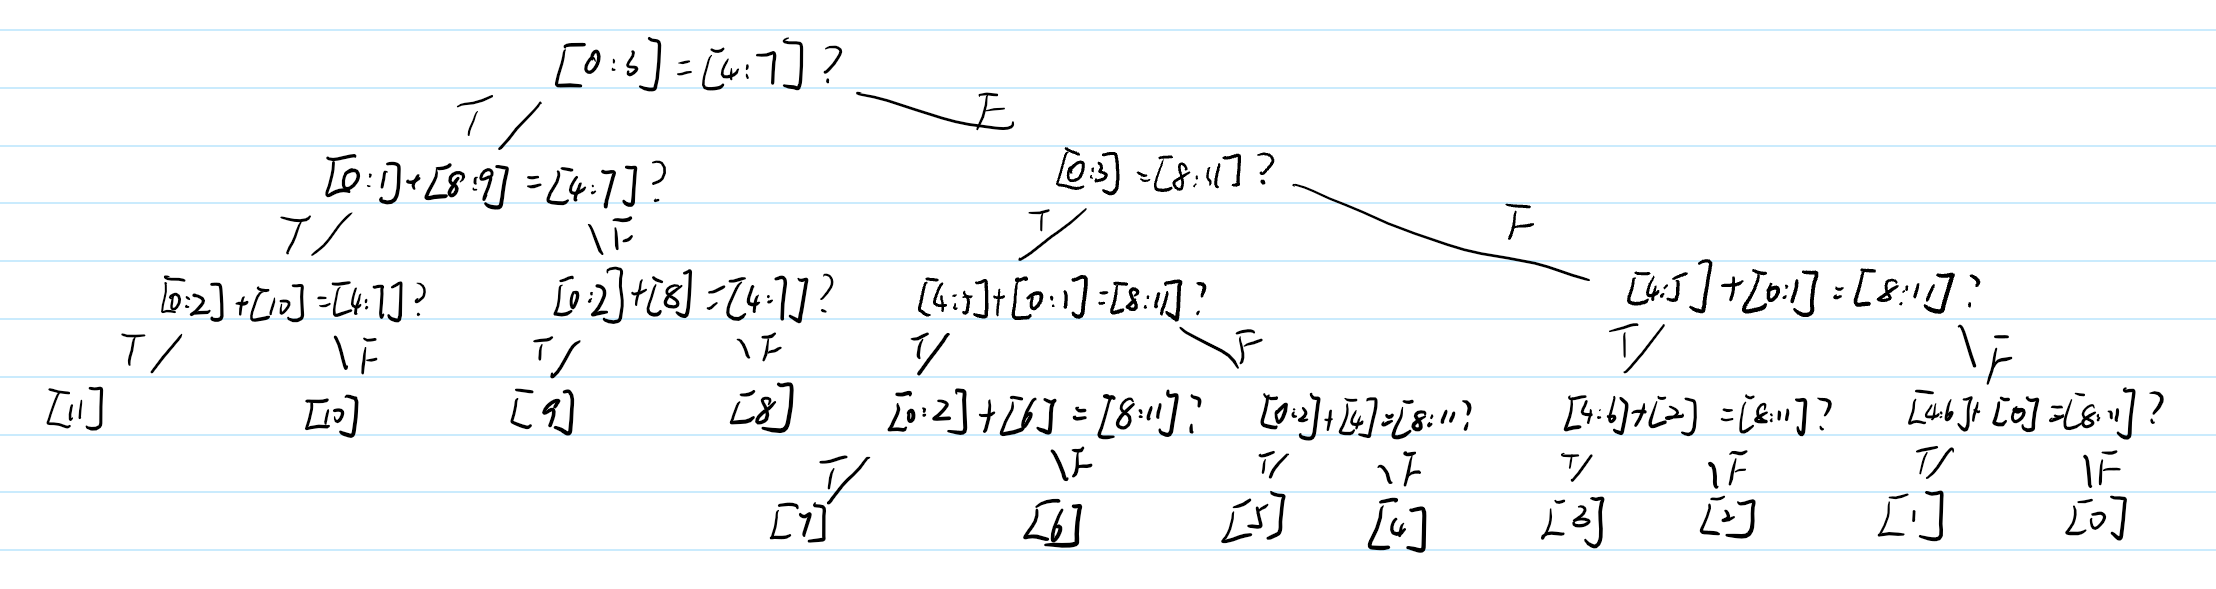 [0:3]=[4:7]?
T F
[0:1]+[8:9]=[4:7]? [0:3]=[8:11]?
T F T F
[0:2]+[10]=[4:7]? [0:2]+[8]=[4:7]? [4:5]+[0:1]=[8:11]? [4:5]+[0:1]=[8:11]?
T F T F T F T F
[11] [10] [9] [8] [0:2]+[6]=[8:11]? [0:2]+[4]=[8:11? [4:6]+[2]=[8:11]? [4:6]+[0]=[8:11]?
T F T F T F T F
[7] [6] [5] [4] [3] [2] [1] [0]